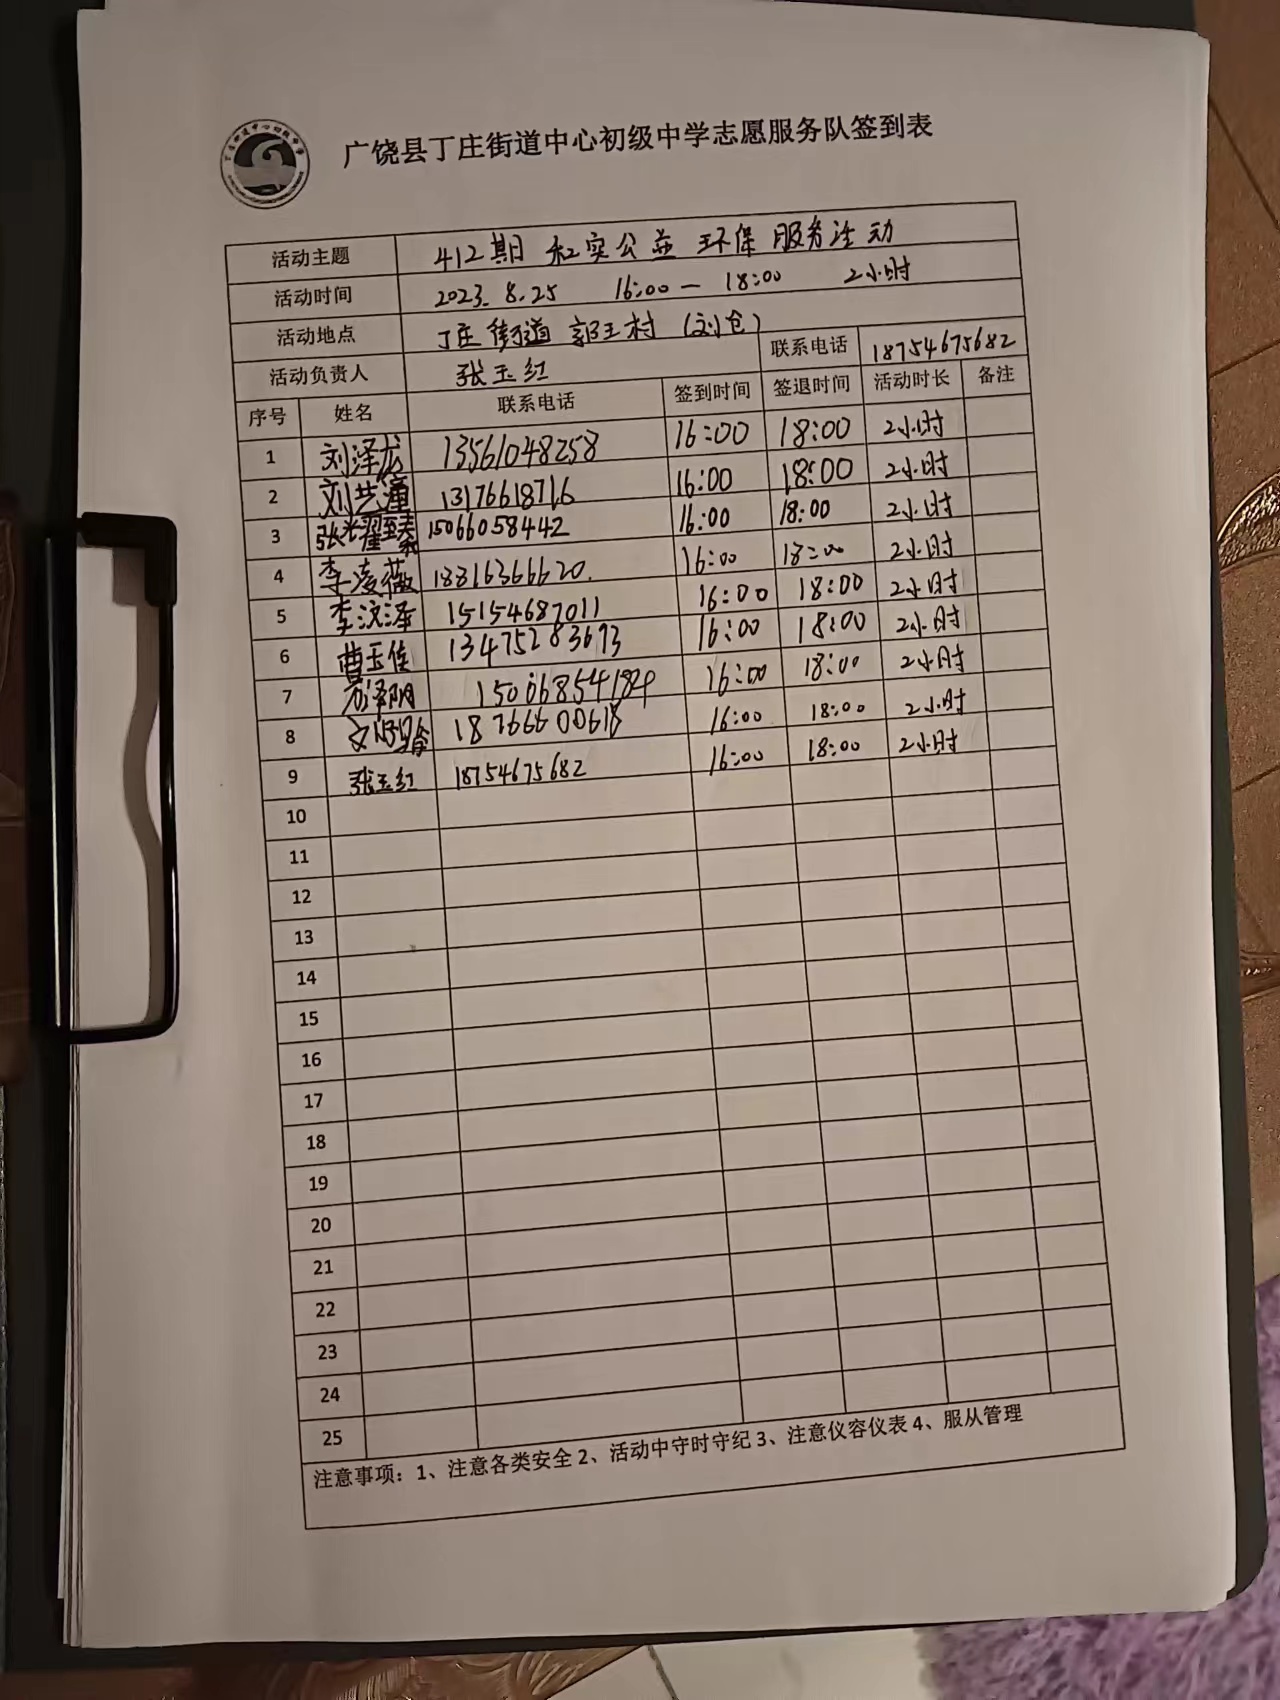 广饶县丁庄街道中心初级中学志愿服务队签到表
活动主题 412期 和实公益 环保 服务活动
活动时间 2023.8.25 16:00—18:00 2小时
活动地点 丁庄街道 郭王村(刘仓)
活动负责人 张玉红 联系电话 18754675682
序号 姓名 联系电话 签到时间 签退时间 活动时长 备注
1 刘泽龙 13561048258 16:00 18:00 2小时
2 刘艺潼 13176618716 16:00 18:00 2小时
3 15066058442 16:00 18:00 2小时
4 李凌薇 18816366620. 16:00 18:00 2小时
5 李汶泽 15154687011 16:00 18:00 2小时
6 曹玉佳 13475283673 16:00 18:00 2小时
7 16:00 18:00 2小时
8 18766600618 16:00 18:00 2小时
9 张玉红 18754675682 16:00 18:00 2小时
10
11
12
13
14
15
16
17
18
19
20
21
22
23
24
25
注意事项：1、注意各类安全 2、活动中守时守纪 3、注意仪容仪表 4、服从管理